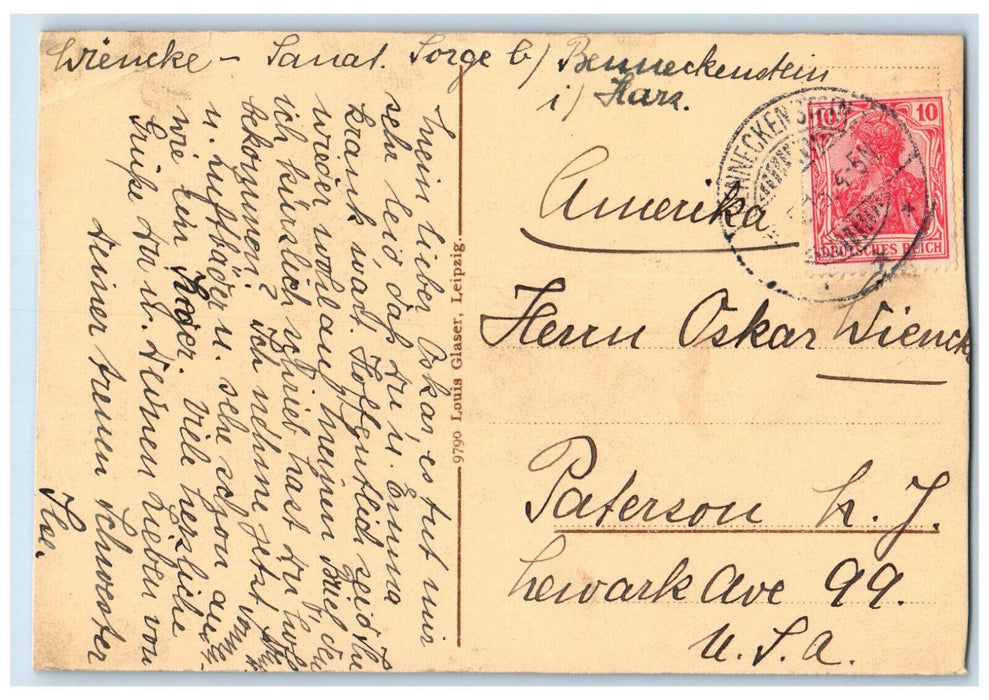 Wiencke - Sanat. Sorge b/ Benneckenstein
i/ Harz.
BENNECKENSTEIN
10 10
DEUTSCHES REICH
Amerika
Herrn Oskar Wiencke
Paterson N. J.
Newark Ave 99.
U. S. A.
9790 Louis Glaser, Leipzig.
Mein lieber Oskar es tut mir
sehr leid daß Du u. Emma
krank ward. Hoffentlich seid Ihr
wieder wohlauf, meinen Brief den
ich kürzlich schrieb hast Du wohl
bekommen? Ich nehme jetzt
u. Luftbäder u. sehe schon aus
wie ein Viele herzliche
Grüße Dir u. Deinen Lieben von
Deiner treuen Schwester